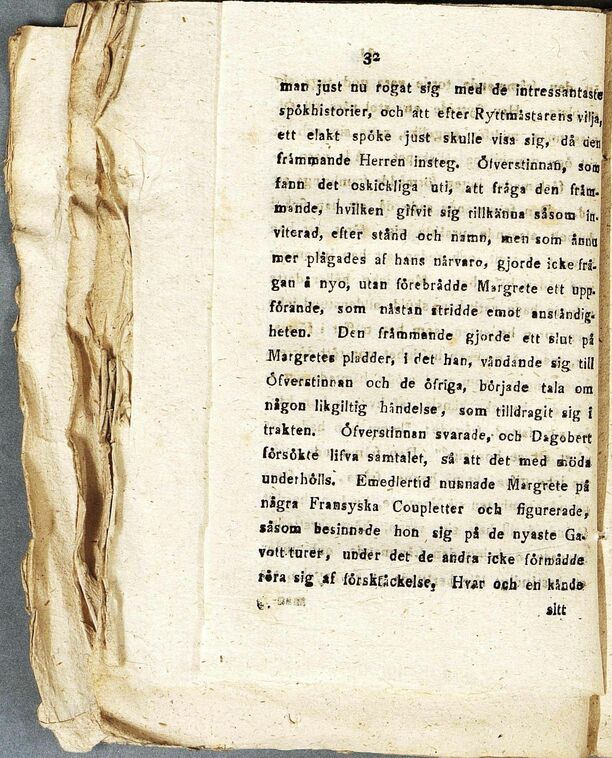 32
man just nu rogat sig med de intressantaste
spökhistorier, och att efter Ryttmästarens vilja,
ett elakt spöke just skulle visa sig, då den
främmande Herren insteg. Öfverstinnan, som
fann det oskickliga uti, att fråga den främ-
mande, hvilken gifvit sig tillkänna såsom in-
viterad, efter stånd och namn, men som ännu
mer plågades af hans närvaro, gjorde icke frå-
gan å nyo, utan förebrådde Margrete ett upp-
förande, som nästan stridde emot anständig-
heten. Den främmande gjorde ett slut på
Margretes pladder, i det han, vändande sig till
Öfverstinnan och de öfriga, började tala om
någon likgiltig händelse, som tilldragit sig i
trakten. Öfverstinnan svarade, och Dagobert
försökte lifva samtalet, så att det med möda
underhölls. Emedlertid nunnade Margrete på
några Fransyska Coupletter och figurerade,
såsom besinnade hon sig på de nyaste Ga-
vott-turer, under det de andra icke förmådde
röra sig af förskräckelse, Hvar och en kände
sitt